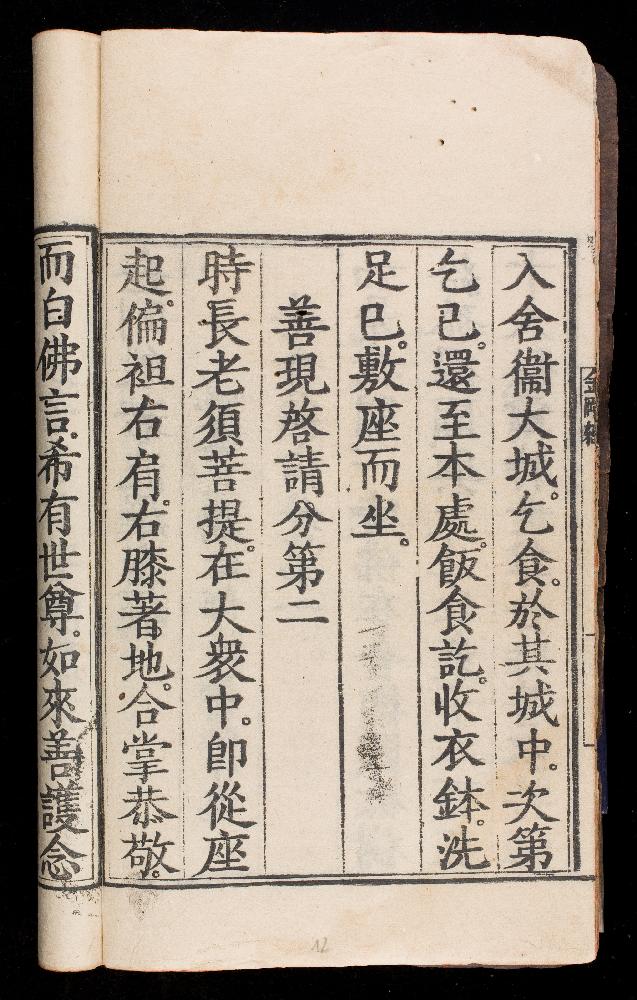 入舍衞大城。乞食。於其城中。次第
乞已。還至本處。飯食訖。收衣鉢。洗
足已。敷座而坐。
善現啓請分第二
時長老須菩提。在大衆中。卽從座
起。偏袒右肩。右膝著地。合掌恭敬。
而白佛言。希有世尊。如來善護念
金剛經
12